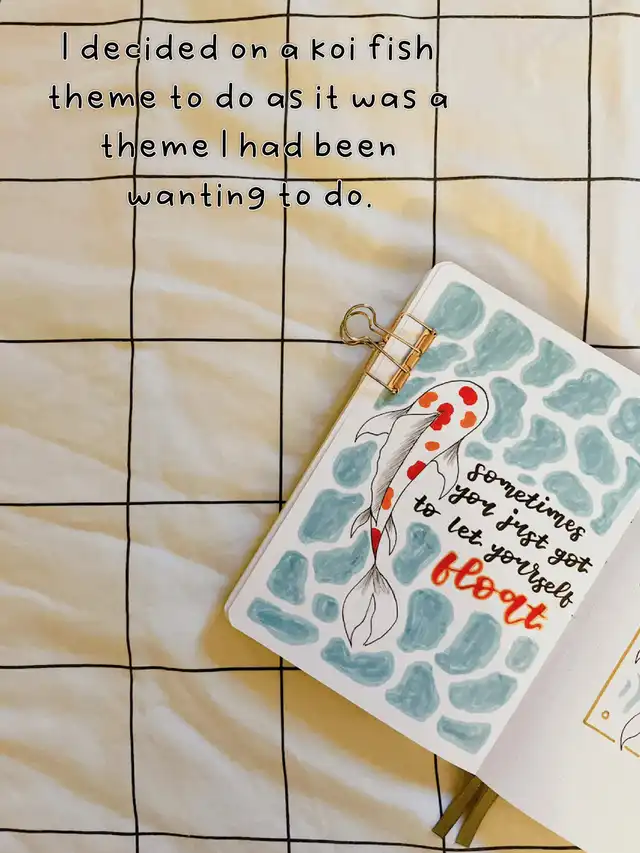 I decided on a koi fish
theme to do as it was a
theme I had been
wanting to do.
sometimes
you just got
to let yourself
float